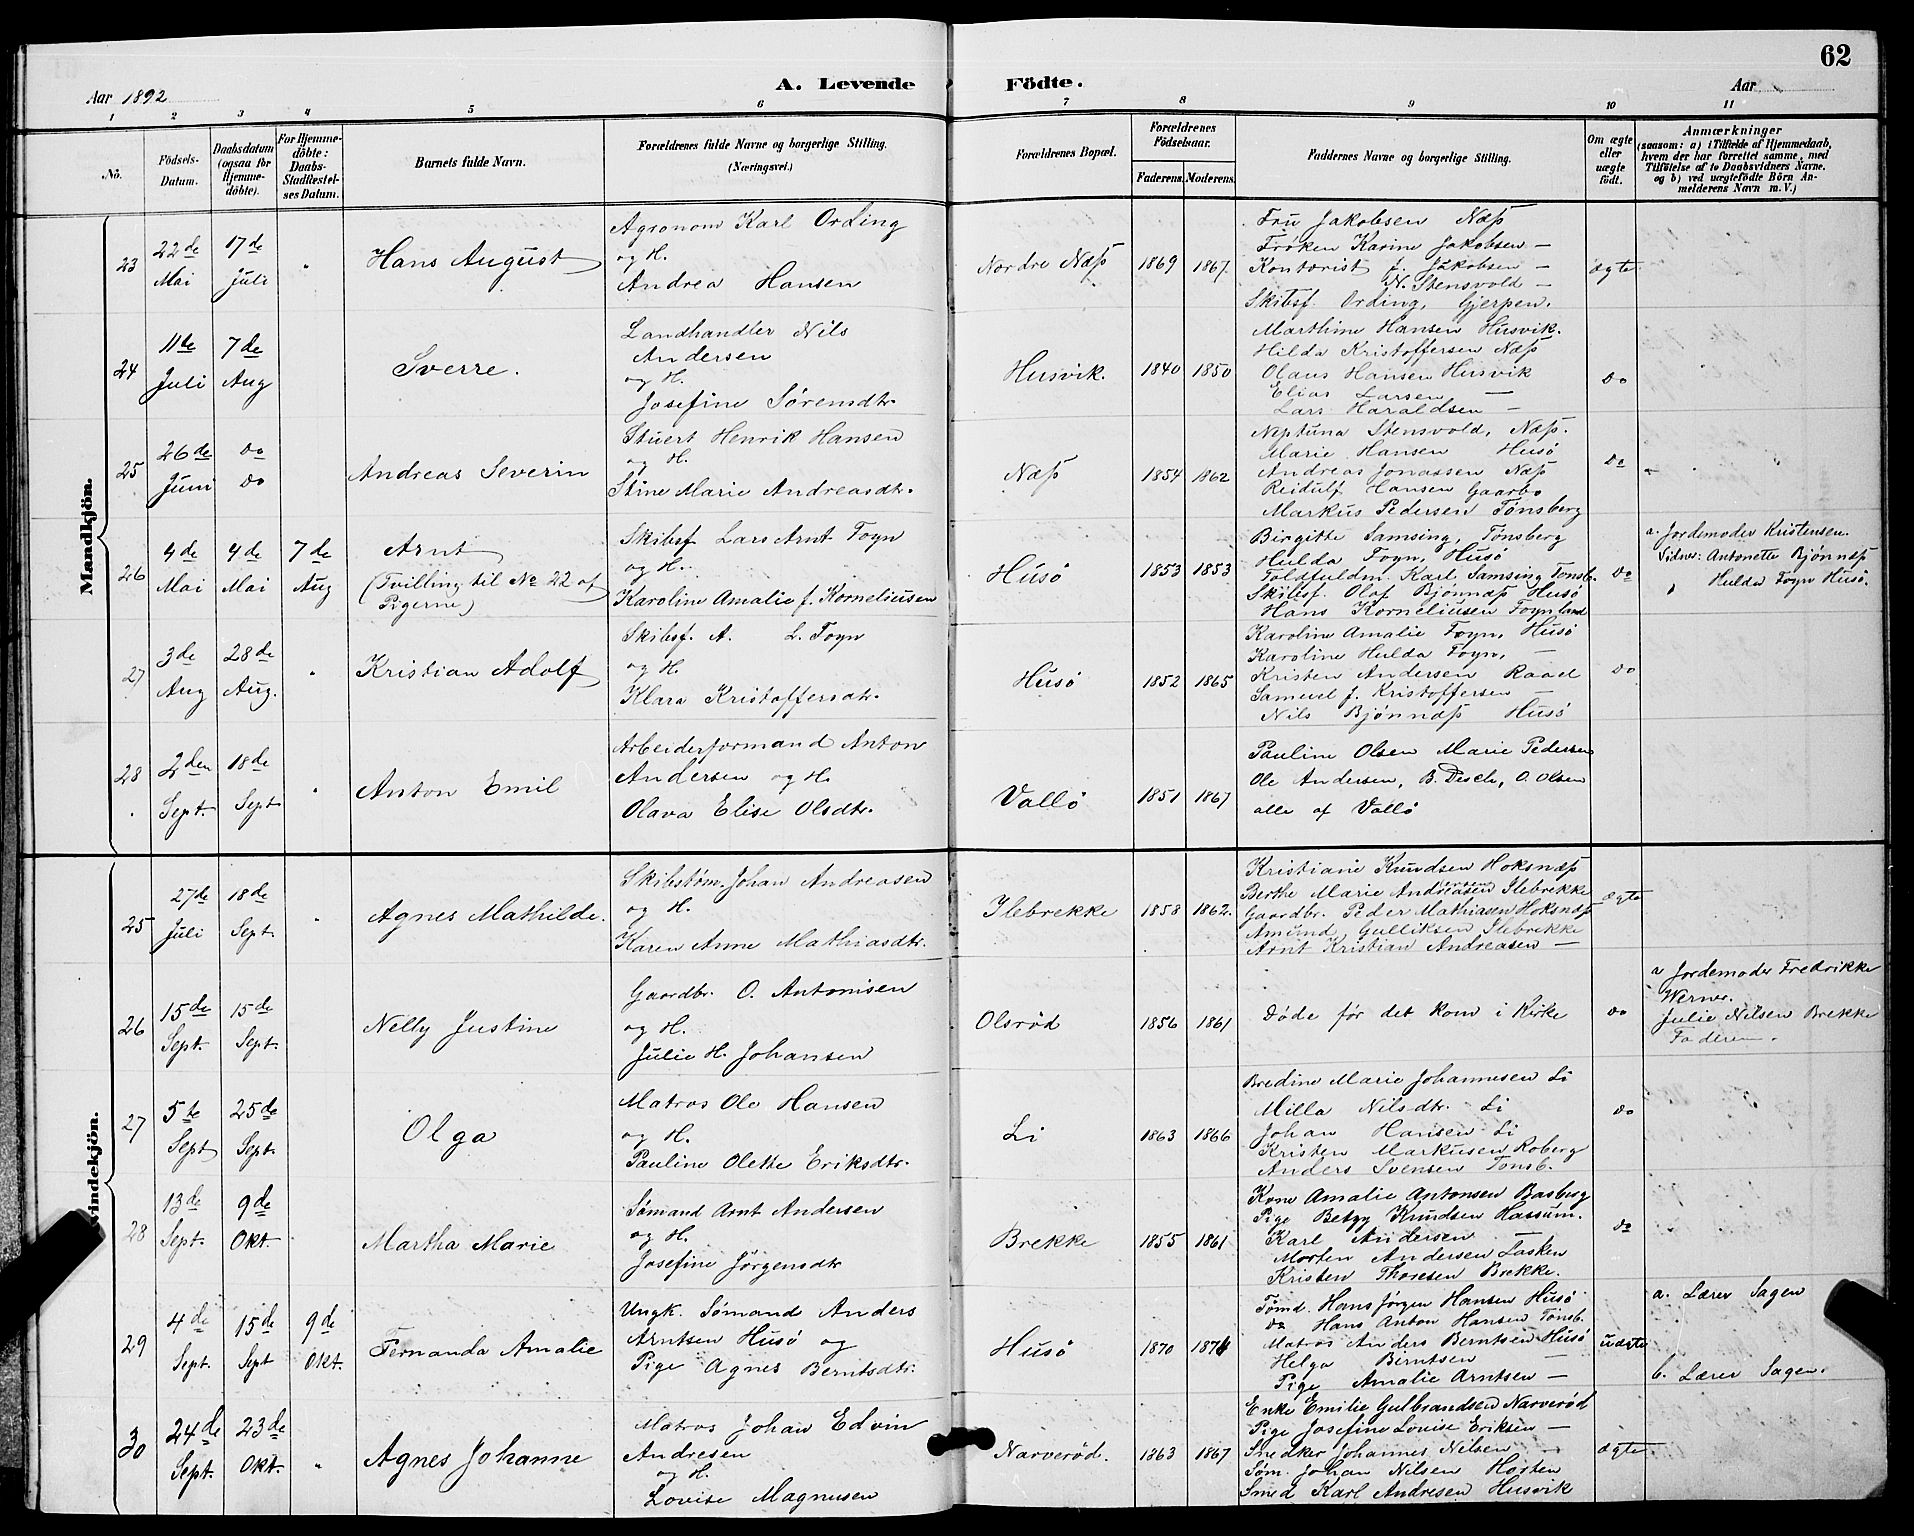 62
A. Levende Födte.
Aar 1892
Aar
1 2 3 4 5 6 7 8 9 10 11
No.
Födsels-Datum.
Daabsdatum (ogsaa for Hjemme-döbte).
For Hjemme-döbte: Daabs-Stadfestel-ses Datum.
Barnets fulde Navn.
Forældrenes fulde Navne og borgerlige Stilling. (Næringsvei.)
Forældrenes Bopæl.
Forældrenes Födselsaar.
Faderens. Moderens.
Faddernes Navne og borgerlige Stilling.
Om ægte eller uægte födt.
Anmærkninger
(saasom: a) i Tilfælde af Hjemmedaab, hvem der har forrettet samme, med Tilföielse af to Daabsvidners Navne. og b) ved uægtefödte Börn An-melderens Navn m. V.)
Mandkjön.
23
22de Mai
17de Juli
"
Hans August
Agronom Karl Ording
og H.
Andrea Hansen
Nordre Næss
1869 1867.
Fru Jakobsen Næss
Frøken Karine Jakobsen —
Kontorist J. Jakobsen —
N. Stensvold —
Skibsf. Ording, Gjerpen.
ægte
24
11te Juli
7de Aug
Sverre.
Landhandler Nils
Andersen
og H.
Josefine Sørensdtr.
Husvik.
1840 1850
Marthine Hansen Husvik.
Hilda Kristoffersen Næss
Olaus Hansen Husvik
Elias Larsen —
Lars Haraldsen —
Do
25
26de Juni
Do Do
Andreas Severin
Stuert Henrik Hansen
og H.
Stine Marie Andreasdtr.
Næss
1854 1862
Neptuna Stensvold, Næss.
Marie Hansen Husö
Andreas Jonassen Næss
Reidulf Hansen Gaarbo
Markus Pedersen Tønsberg
Do
26
4de Mai
4de Mai
7de Aug
Arnt
(Tvilling til No 22 af
Pigerne)
Skibsf Lars Arnt Foyn
og H.
Karoline Amalie f. Korneliussen
Husö
1853 1853
Birgitte Samsing, Tønsberg
Hulda Foyn, Husö
Toldfuldm. Karl Samsing Tønsb.
Skibsf. Olaf Bjønnæss Husö
Hans Korneliusen Foynland
Do
a. Jordemoder Kristensen.
Vidner: Antonette Bjønnæss
Hulda Foyn Husö.
27
3de Aug
28de Aug.
"
Kristian Adolf
Skibsf. A. L. Foyn
og H.
Klara Kristoffersdtr.
Husö
1852 1865
Karoline Amalie Foyn, Husö
Karoline Hulda Foyn, —
Kristen Andersen Raael
Samuel J. Kristoffersen —
Nils Bjønnæss Husö
Do
28
2den Sept.
18de Sept
"
Anton Emil
Arbeiderformand Anton
Andersen og H.
Olava Elise Olsdtr.
Vallö
1851 1867
Pauline Olsen Marie Pedersen
Ole Andersen, B. Desch, O. Olsen
alle af Vallö
Kvindekjön.
25
27de Juli
18de Sept.
"
Agnes Mathilde.
Skibstøm. Johan Andreasen
og H.
Karen Anne Mathiasdtr.
Ilebrekke
1858 1862.
Kristiane Knudsen Hoksnæss
Berthe Marie Andreasen Ilebrekke
Gaardbr. Peder Mathiasen Hoksnæss
Amund Gulliksen Ilebrekke
Arnt Kristian Andreasen —
ægte
26
15de Sept.
15de Sept.
Nelly Justine
Gaardbr. O. Antonisen
og H.
Julie H. Johansen
Olsrød
1856 1861
Døde før det kom i Kirke
Do
a Jordemoder Fredrikke
Werner.
Julie Nilsen Brekke
Faderen.
27
5te Sept
25de Sept.
Olga
Matros Ole Hansen
og H.
Pauline Olette Eriksdtr.
Li
1863 1866
Bredine Marie Johannesen Li
Milla Nilsdtr. Li
Johan Hansen Li
Kristen Markusen Roberg
Anders Svensen Tønsb.
Do
28
13de Sept.
9de Okt.
Martha Marie
Sømand Arnt Andersen
og H.
Josefine Jörgensdtr
Brekke
1855 1861
Kone Amalie Antonsen Basberg
Pige Betzy Knudsen Hassum.
Karl Andersen —
Morten Andersen Lasken
Kristen Thoresen Brekke.
Do
29
4de Sept.
15de Sept
9de Okt.
Fernanda Amalie
Ungk. Sømand Anders
Arntsen Husö og
Pige Agnes Berntsdtr.
Husö
1870 1874
Tømd. Hans Jörgen Hansen Husö
Do Hans Anton Hansen Tønsb.
Matros Anders Berntsen Husö
Helga Berntsen —
Pige Amalie Arntsen —
uægte
a. Lærer Sagen
b. Lærer Sagen.
30
24de Sept.
23de Okt.
"
Agnes Johanne
Matros Johan Edvin
Andresen
og H.
Lovise Magnusen
Narverød.
1863 1867
Enke Emilie Gulbrandsen Narverød
Pige Josefine Lovise Eriksen —
Snedker Johannes Nilsen —
Søm. Johan Nilsen Horten
Smed Karl Andresen Husvik
ægte